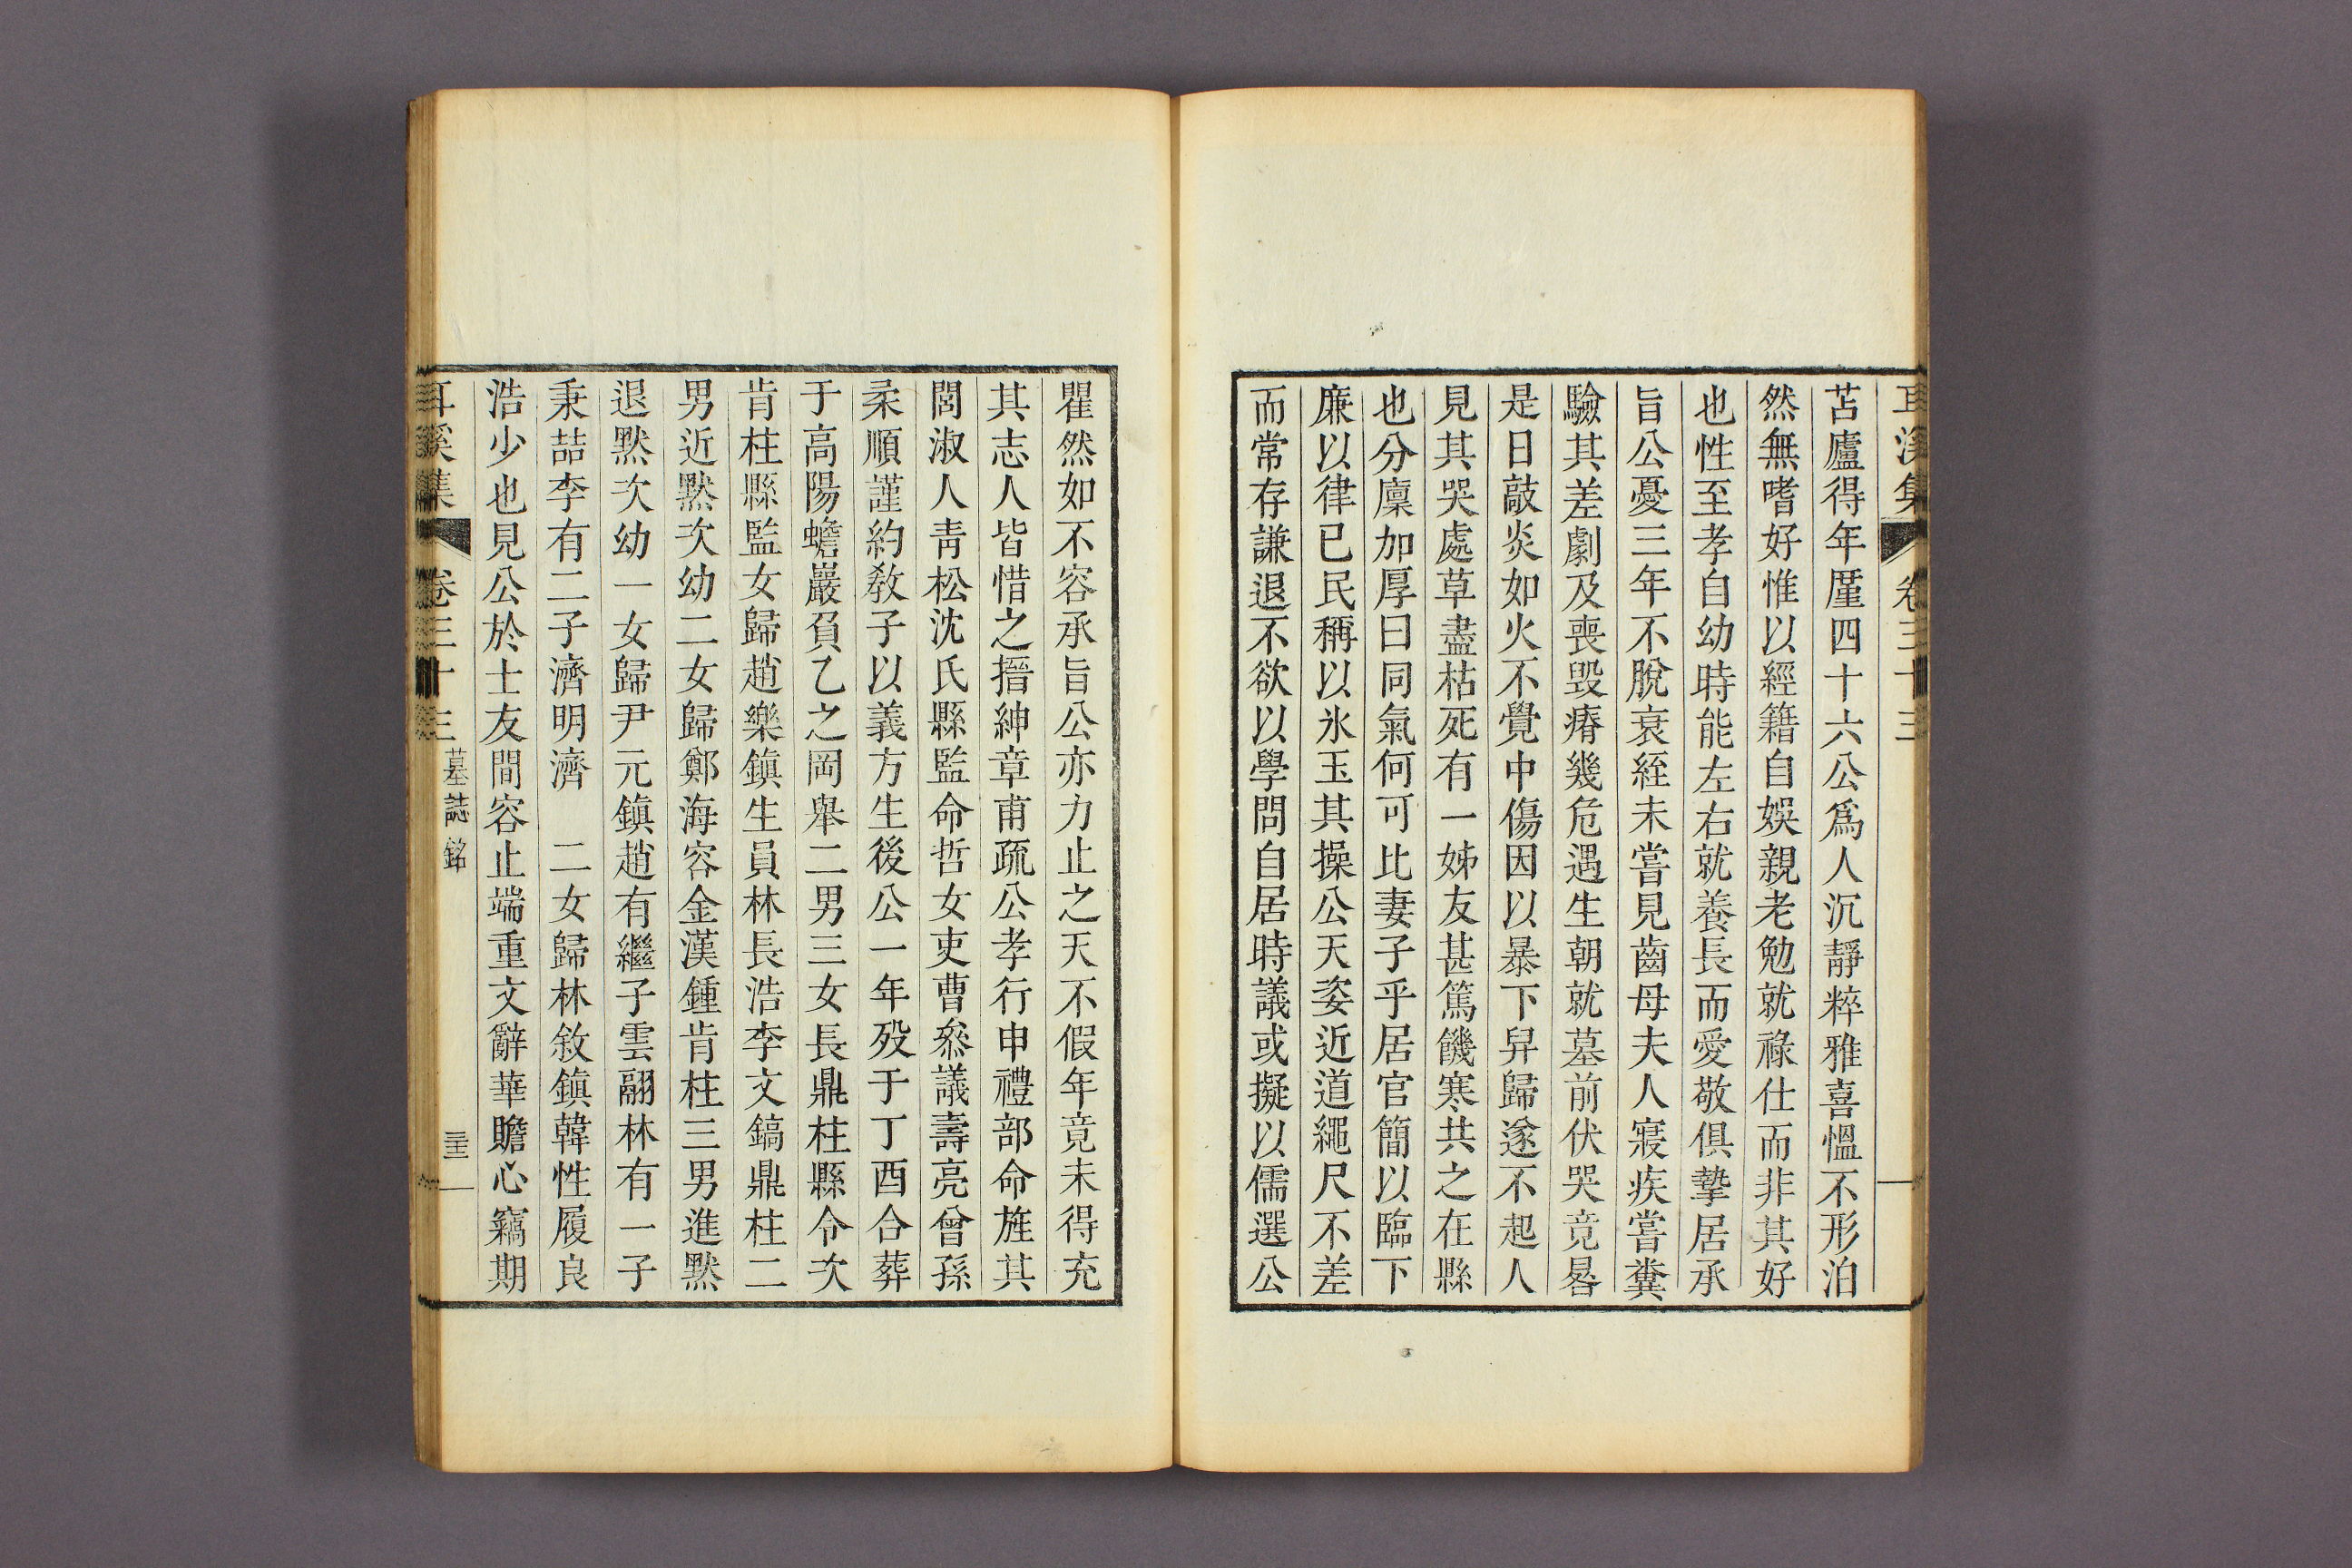 耳溪集 卷三十三
苫廬得年厪四十六公爲人沉靜粹雅喜慍不形泊
然無嗜好惟以經籍自娛親老勉就祿仕而非其好
也性至孝自幼時能左右就養長而愛敬俱摯居承
旨公憂三年不脫衰絰未嘗見齒母夫人寢疾嘗糞
驗其差劇及喪毁瘠幾危遇生朝就墓前伏哭竟晷
是日敲炎如火不覺中傷因以暴下舁歸遂不起人
見其哭處草盡枯死有一姊友甚篤饑寒共之在縣
也分廩加厚曰同氣何可比妻子乎居官簡以臨下
廉以律已民稱以氷玉其操公天姿近道繩尺不差
而常存謙退不欲以學問自居時議或擬以儒選公
瞿然如不容承旨公亦力止之天不假年竟未得充
其志人皆惜之搢紳章甫疏公孝行申禮部命旌其
閭淑人靑松沈氏縣監命哲女吏曹叅議壽亮曾孫
柔順謹約敎子以義方生後公一年歿于丁酉合葬
于高陽蟾巖負乙之岡舉二男三女長鼎柱縣令次
肯柱縣監女歸趙樂鎭生員林長浩李文鎬鼎柱二
男近默次幼二女歸鄭海容金漢鍾肯柱三男進默
退默次幼一女歸尹元鎭趙有繼子雲翮林有一子
秉喆李有二子濟明濟　二女歸林敘鎭韓性履良
浩少也見公於士友間容止端重文辭華贍心竊期
耳溪集 卷三十三 墓誌銘 三十三